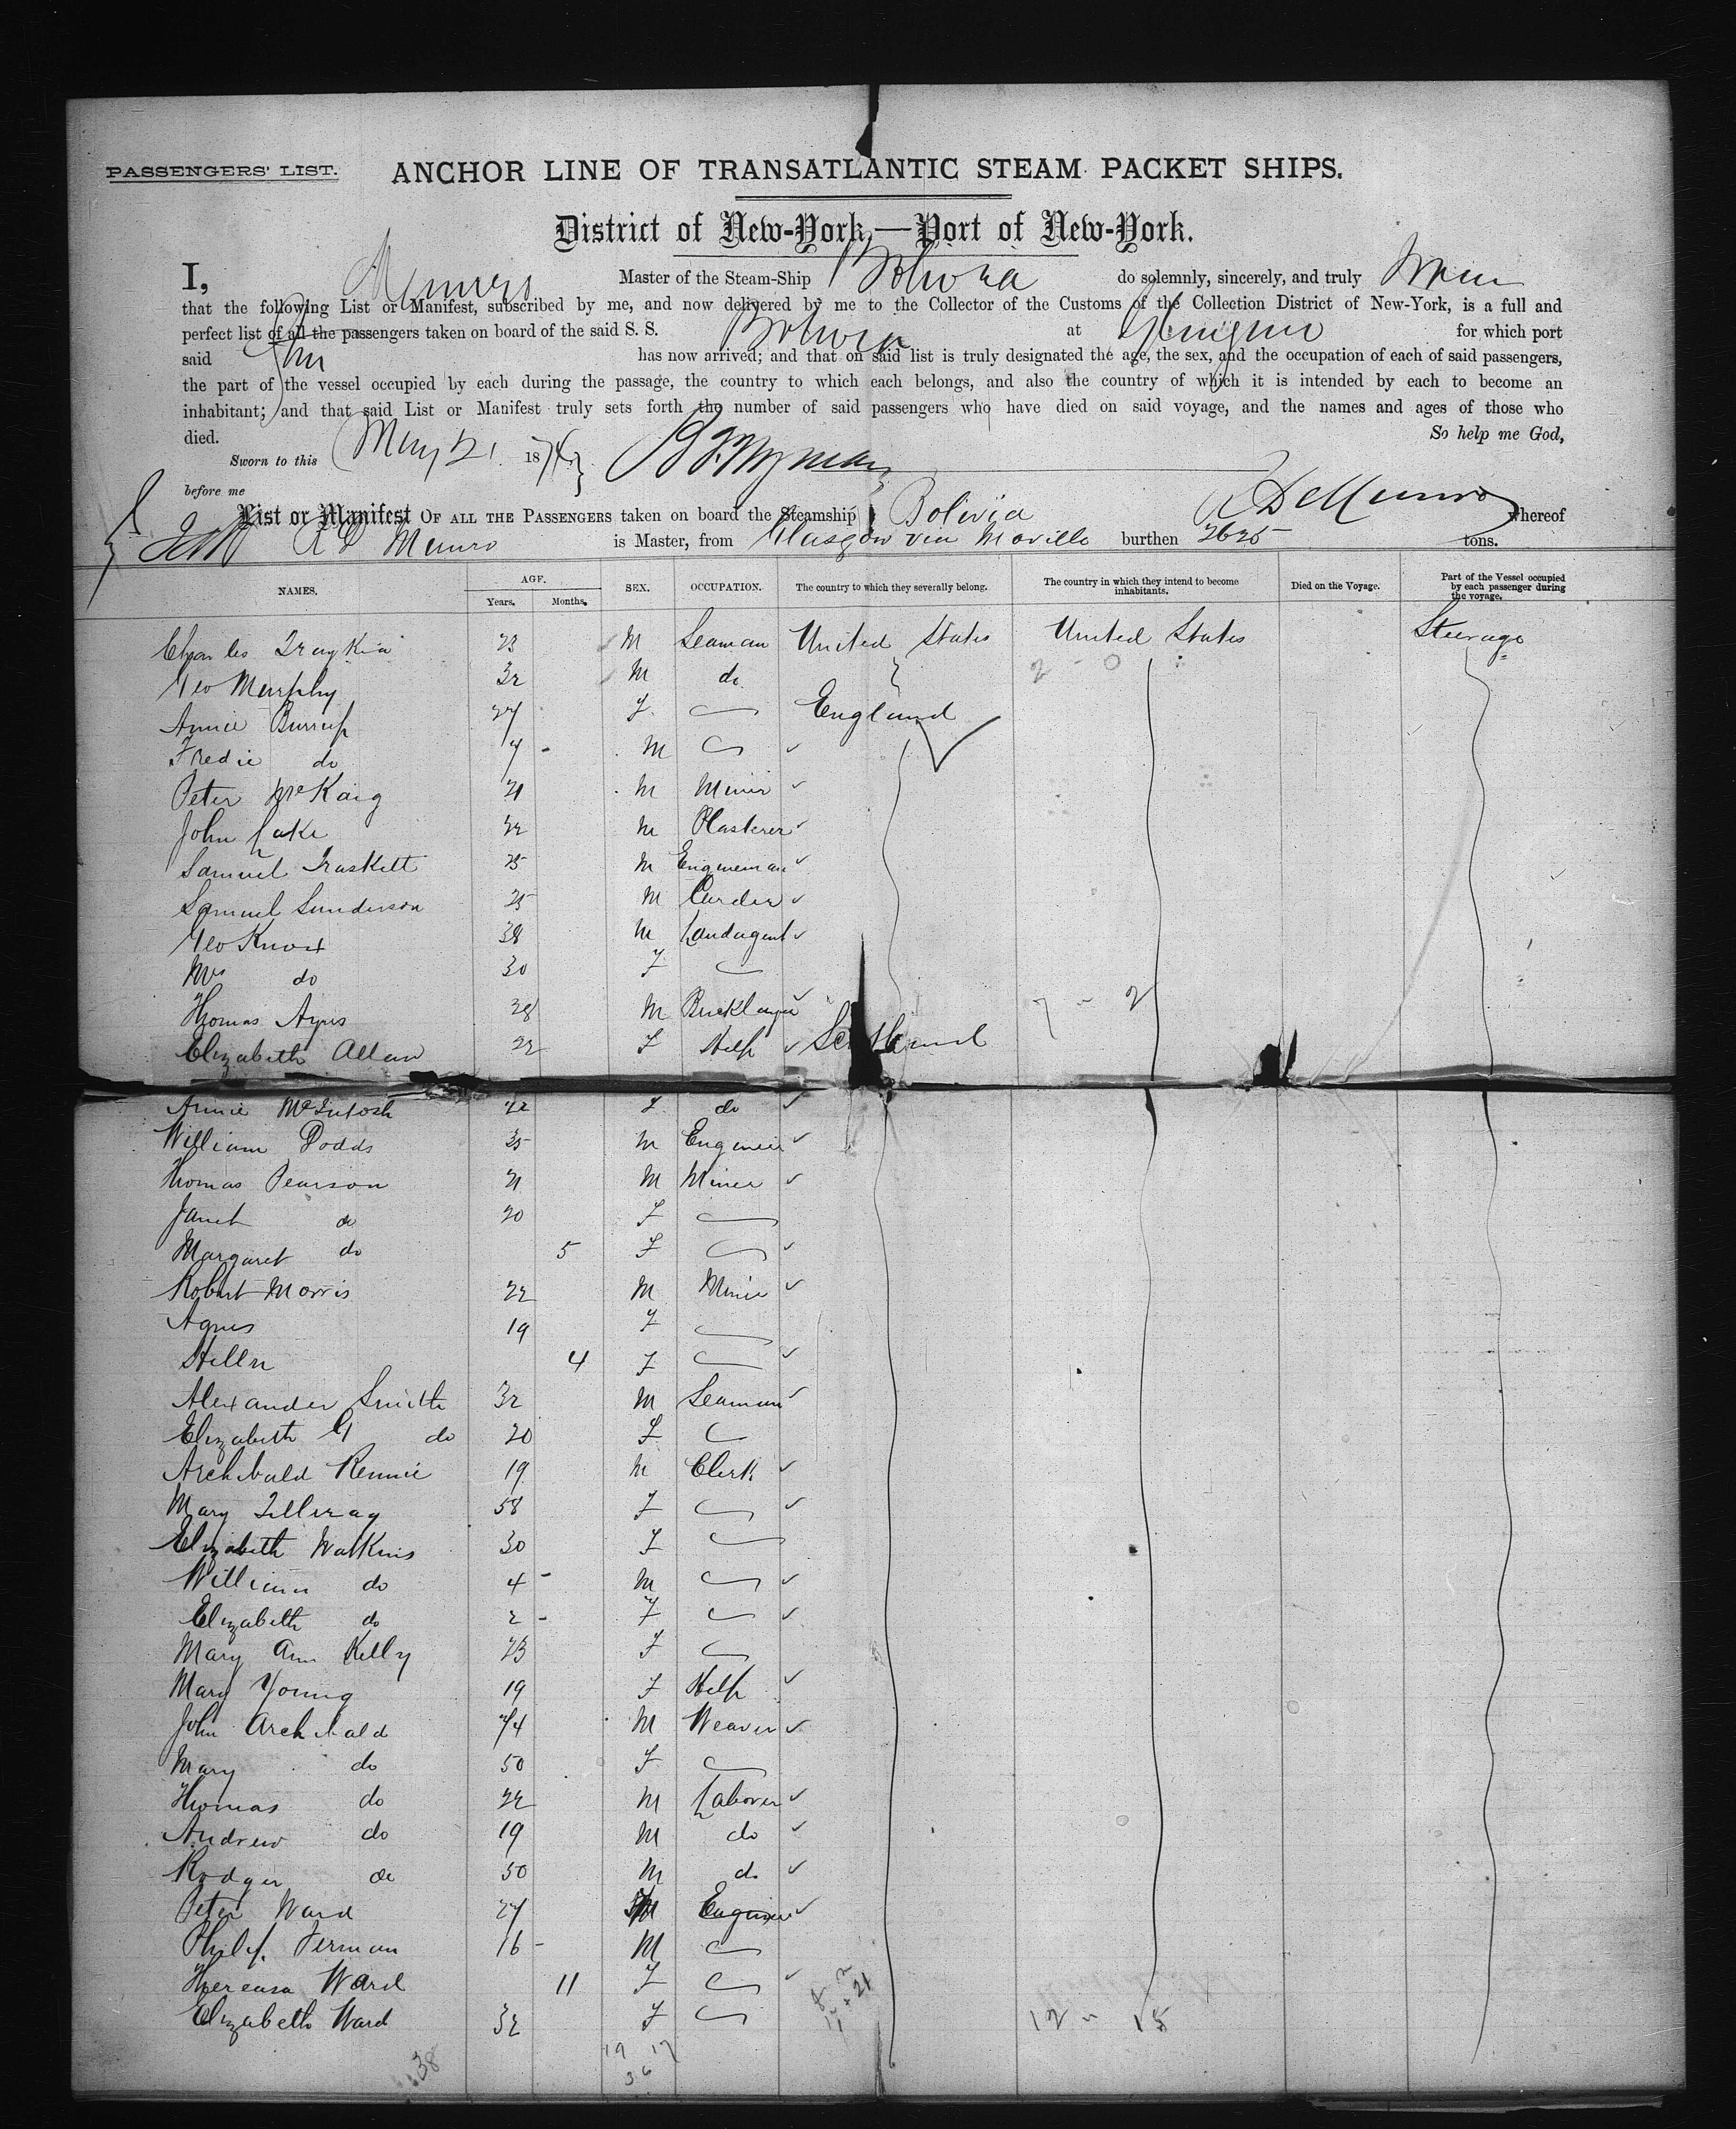 PASSENGERS' LIST.
ANCHOR LINE OF TRANSATLANTIC STEAM PACKET SHIPS.
District of New-York—Port of New-York.
I, Munro Master of the Steam-Ship Bolivia do solemnly, sincerely, and truly
that the following List or Manifest, subscribed by me, and now delivered by me to the Collector of the Customs of the Collection District of New-York, is a full and
perfect list of all the passengers taken on board of the said S. S. Bolivia at Glasgow for which port
said has now arrived; and that on said list is truly designated the age, the sex, and the occupation of each of said passengers,
the part of the vessel occupied by each during the passage, the country to which each belongs, and also the country of which it is intended by each to become an
inhabitant; and that said List or Manifest truly sets forth the number of said passengers who have died on said voyage, and the names and ages of those who
died. So help me God,
Sworn to this May 21 187
before me
List or Manifest OF ALL THE PASSENGERS taken on board the Steamship Bolivia whereof
R D Munro
R D Munro is Master, from Glasgow via Moville burthen 2625 tons.
NAMES. AGE. Years. Months. SEX. OCCUPATION. The country to which they severally belong. The country in which they intend to become inhabitants. Died on the Voyage. Part of the Vessel occupied by each passenger during the voyage.
Charles 23 M Seaman United States United States Steerage
Geo Murphy 32 M do 2 - 0
Annie Burrup 27 F England
Fredie do 7 - M
Peter McKaig 21 M Miner
John Lake 32 M Plasterer
Samuel Traskett 25 M Engineman
Samuel Sunderson 25 M Carder
Geo Knox 38 M Landagent
Mrs do 30 F
Thomas Ayres 28 M Bricklayer 7 - 2
Elizabeth Allan 22 F Help Scotland
Annie McIntosh 22 F do
William Dodds 35 M Engineer
Thomas Pearson 21 M Miner
Janet do 20 F
Margaret do 5 F
Robert Morris 22 M Miner
Agnes 19 F
Hellen 4 F
Alexander Smith 32 M Seaman
Elizabeth G do 20 F
Archibald Rennie 19 M Clerk
Mary 58 F
Elizabeth Watkins 30 F
William do 4 - M
Elizabeth do 2 - F
Mary Ann Kelly 23 F
Mary Young 19 F Help
John Archibald M Weaver
Mary do 50 F
Thomas do 22 M Laborer
Andrew do 19 M do
Rodger do 50 M do
Peter Ward 27 M Engineer
Philip Ferman 16 - M
Thereasa Ward 11 F
Elizabeth Ward 32 F 12 - 15
19 17
36
38